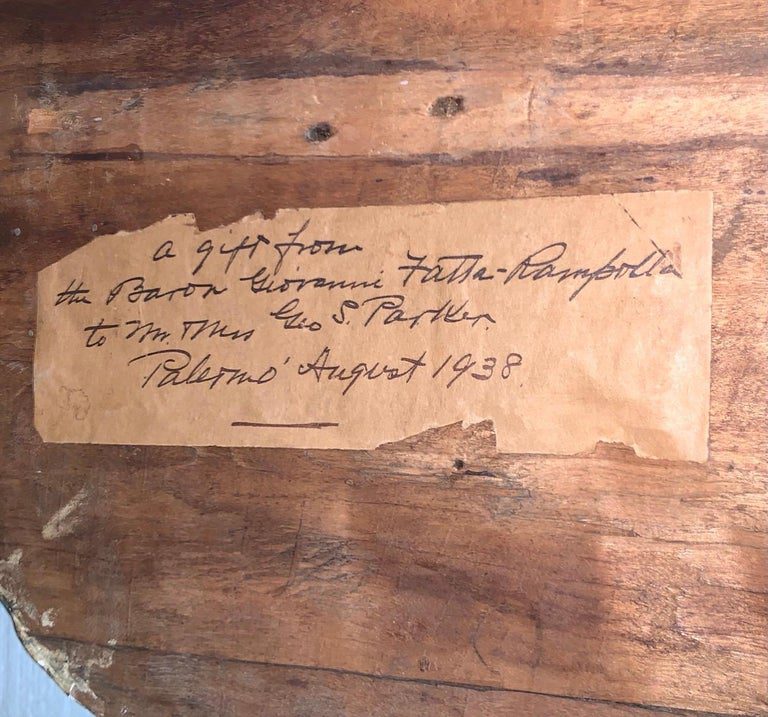 a gift from
the Baron Giovanni Fatta-Rampolla
to Mr. & Mrs Geo S. Parker.
Palermo August 1938.